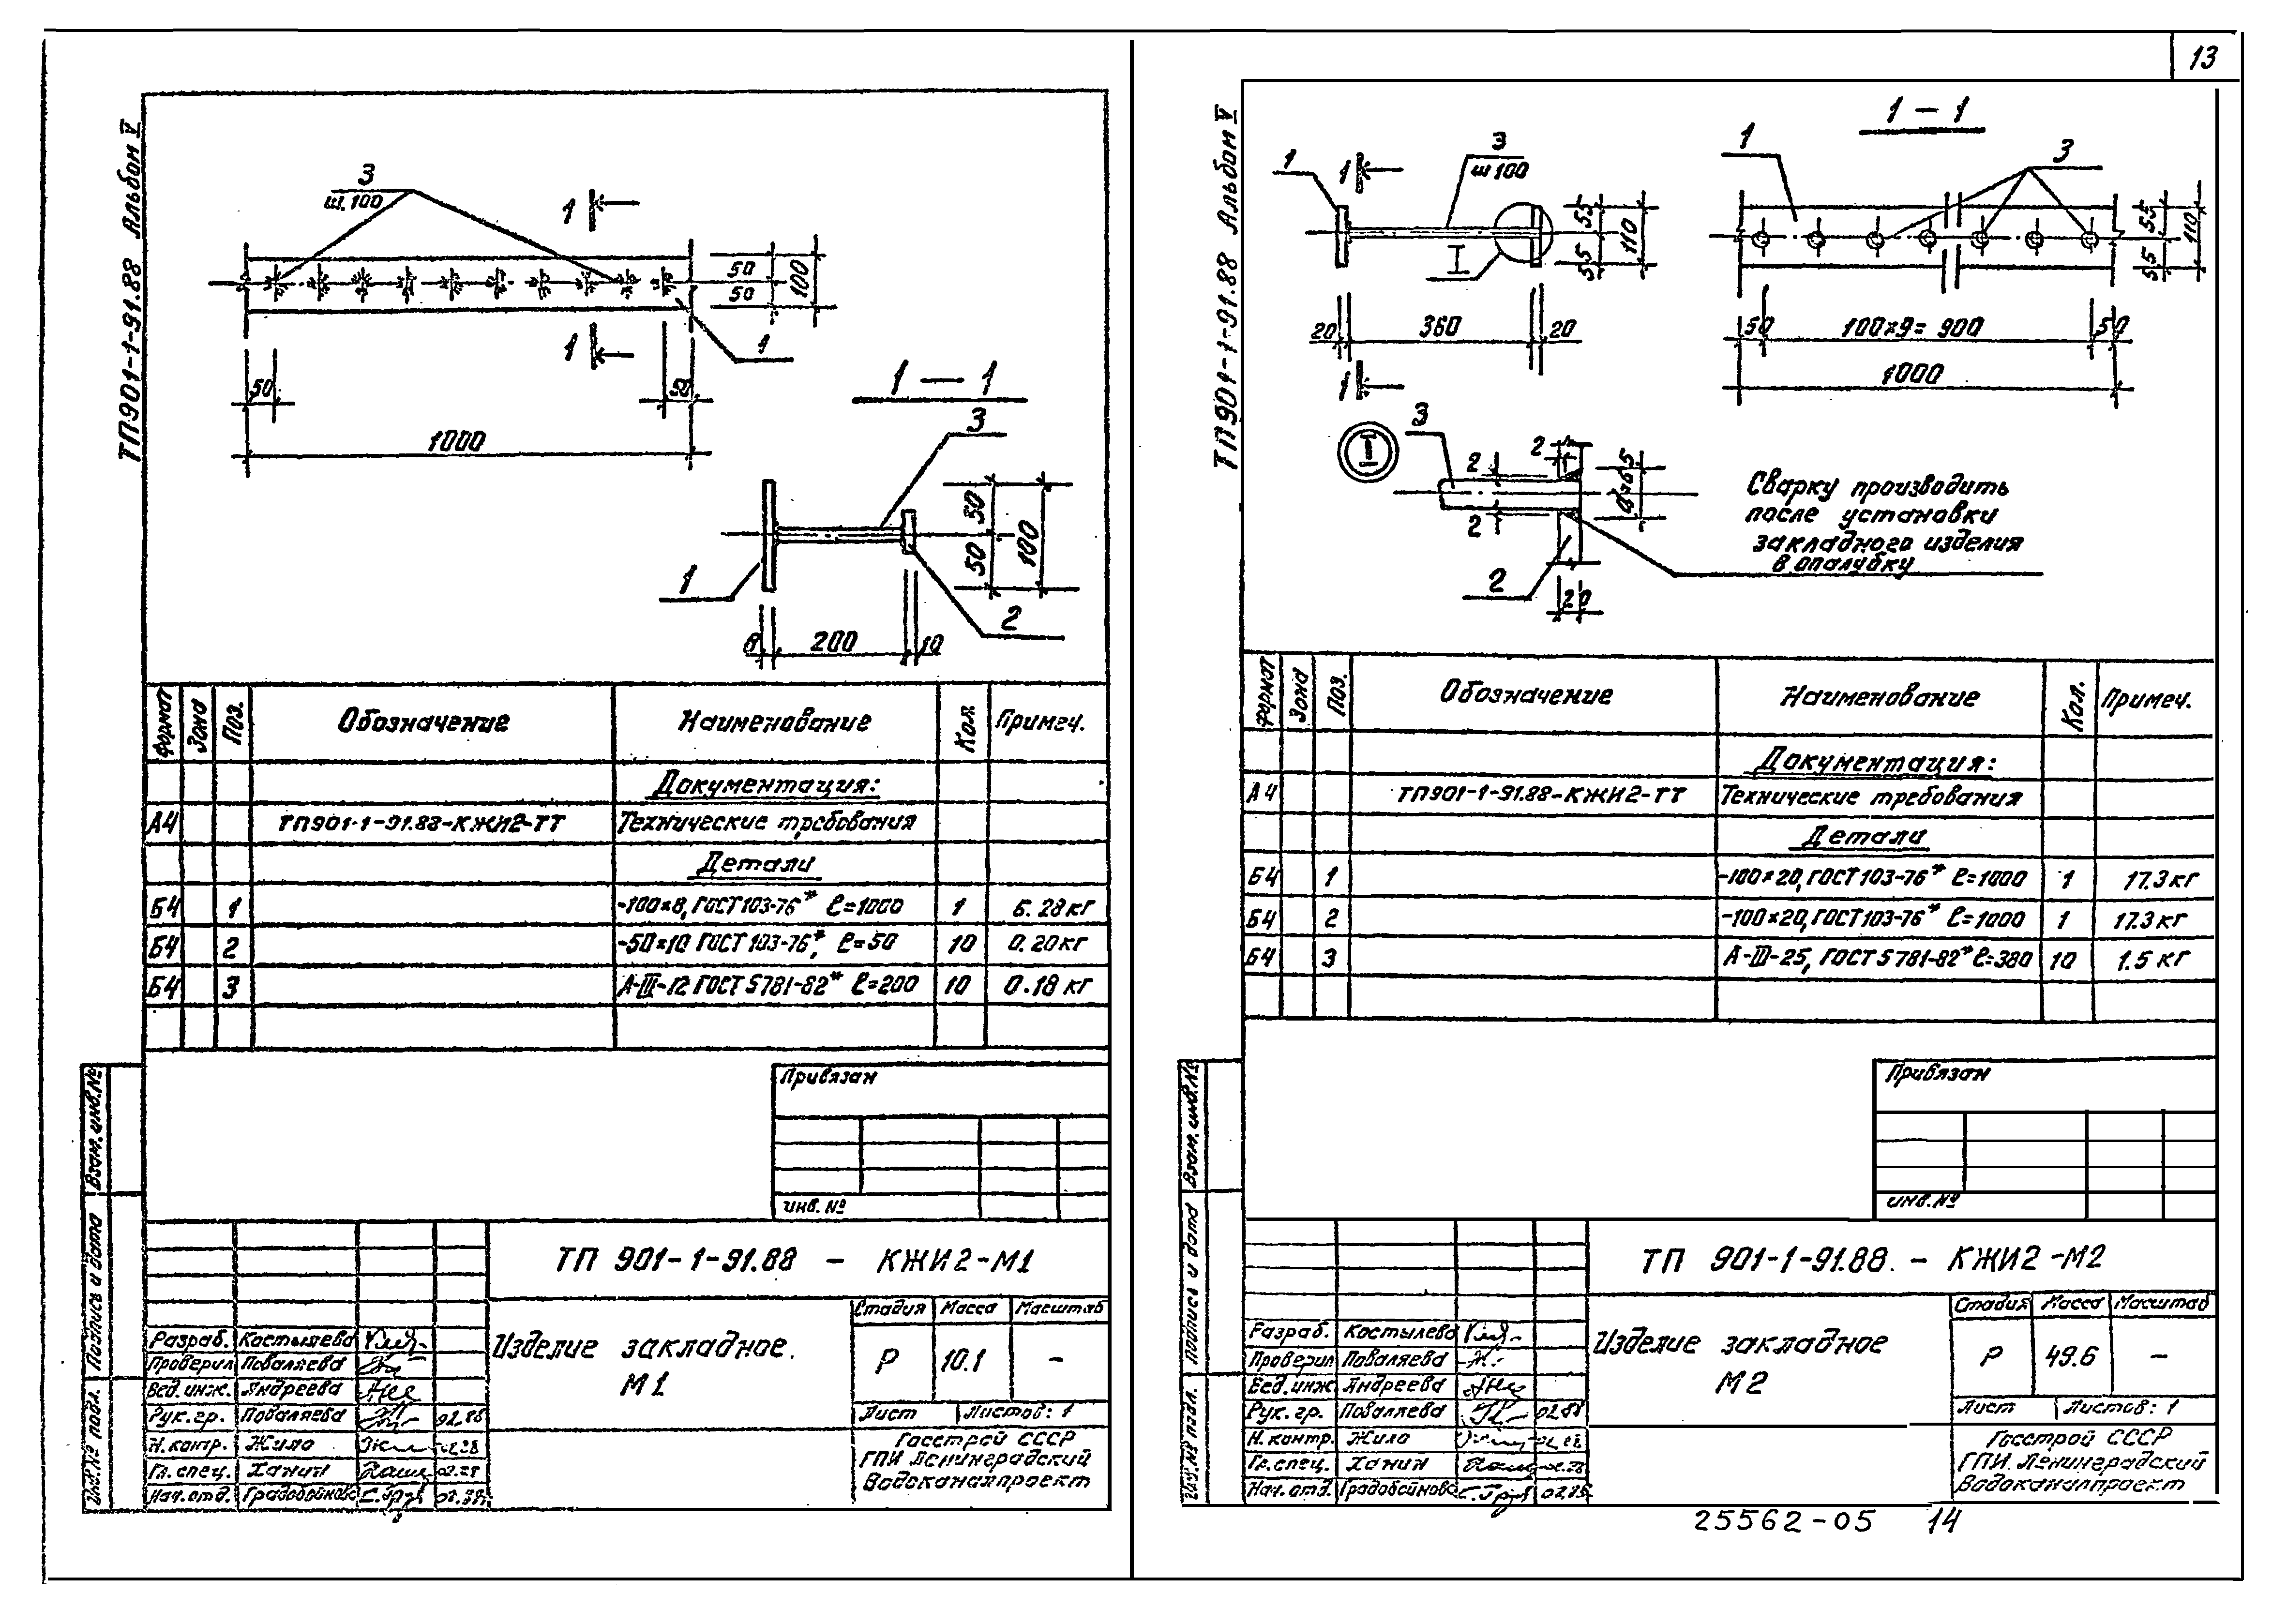 13
ТП901-1-91.88 Альбом V
3
ш.100
1
1
50
50
100
1
50
50
1000
1 — 1
3
50
50
100
1
2
8
200
10
Формат Зона Поз. Обозначение Наименование Кол. Примеч.
Документация:
А4 ТП901-1-91.88-КЖИ2-ТТ Технические требования
Детали
Б4 1 -100×8, ГОСТ103-76* ℓ=1000 1 6.28кг
Б4 2 -50×10 ГОСТ103-76*, ℓ=50 10 0.20кг
Б4 3 А-III-12 ГОСТ5781-82* ℓ=200 10 0.18кг
Привязан
инв. №
Взам. инв.№
Подпись и дата
Инв.№ подл.
ТП 901-1-91.88 - КЖИ2-М1
Изделие закладное.
М1
Стадия Масса Масштаб
Р 10.1 –
Лист Листов: 1
Госстрой СССР
ГПИ Ленинградский
Водоканалпроект
Разраб. Костылева
Проверил Поваляева
Вед. инж. Андреева
Рук. гр. Поваляева 02.88
Н. контр. Жило 02.88
Гл. спец. Ханин 02.88
Нач. отд. Градобойнова 02.88
ТП901-1-91.88 Альбом V
1
1
3
ш100
I
55
55
110
20
360
20
1
1 – 1
1
3
55
55
110
50
100×9=900
50
1000
I
3
2
2
2
2
20
Сварку производить
после установки
закладного изделия
в опалубку
Формат Зона Поз. Обозначение Наименование Кол. Примеч.
Документация:
А4 ТП901-1-91.88-КЖИ2-ТТ Технические требования
Детали
Б4 1 -100×20, ГОСТ103-76* ℓ=1000 1 17.3кг
Б4 2 -100×20, ГОСТ103-76* ℓ=1000 1 17.3кг
Б4 3 А-III-25, ГОСТ5781-82* ℓ=380 10 1.5кг
Привязан
инв. №
Взам. инв.№
Подпись и дата
Инв.№ подл.
ТП 901-1-91.88. - КЖИ2-М2
Изделие закладное
М2
Стадия Масса Масштаб
Р 49.6 –
Лист Листов: 1
Госстрой СССР
ГПИ Ленинградский
Водоканалпроект
Разраб. Костылева
Проверил Поваляева
Вед. инж Андреева
Рук. гр. Поваляева 02.88
Н. контр. Жило 02.88
Гл. спец. Ханин 02.88
Нач. отд. Градобойнова 02.88
25562-05 14